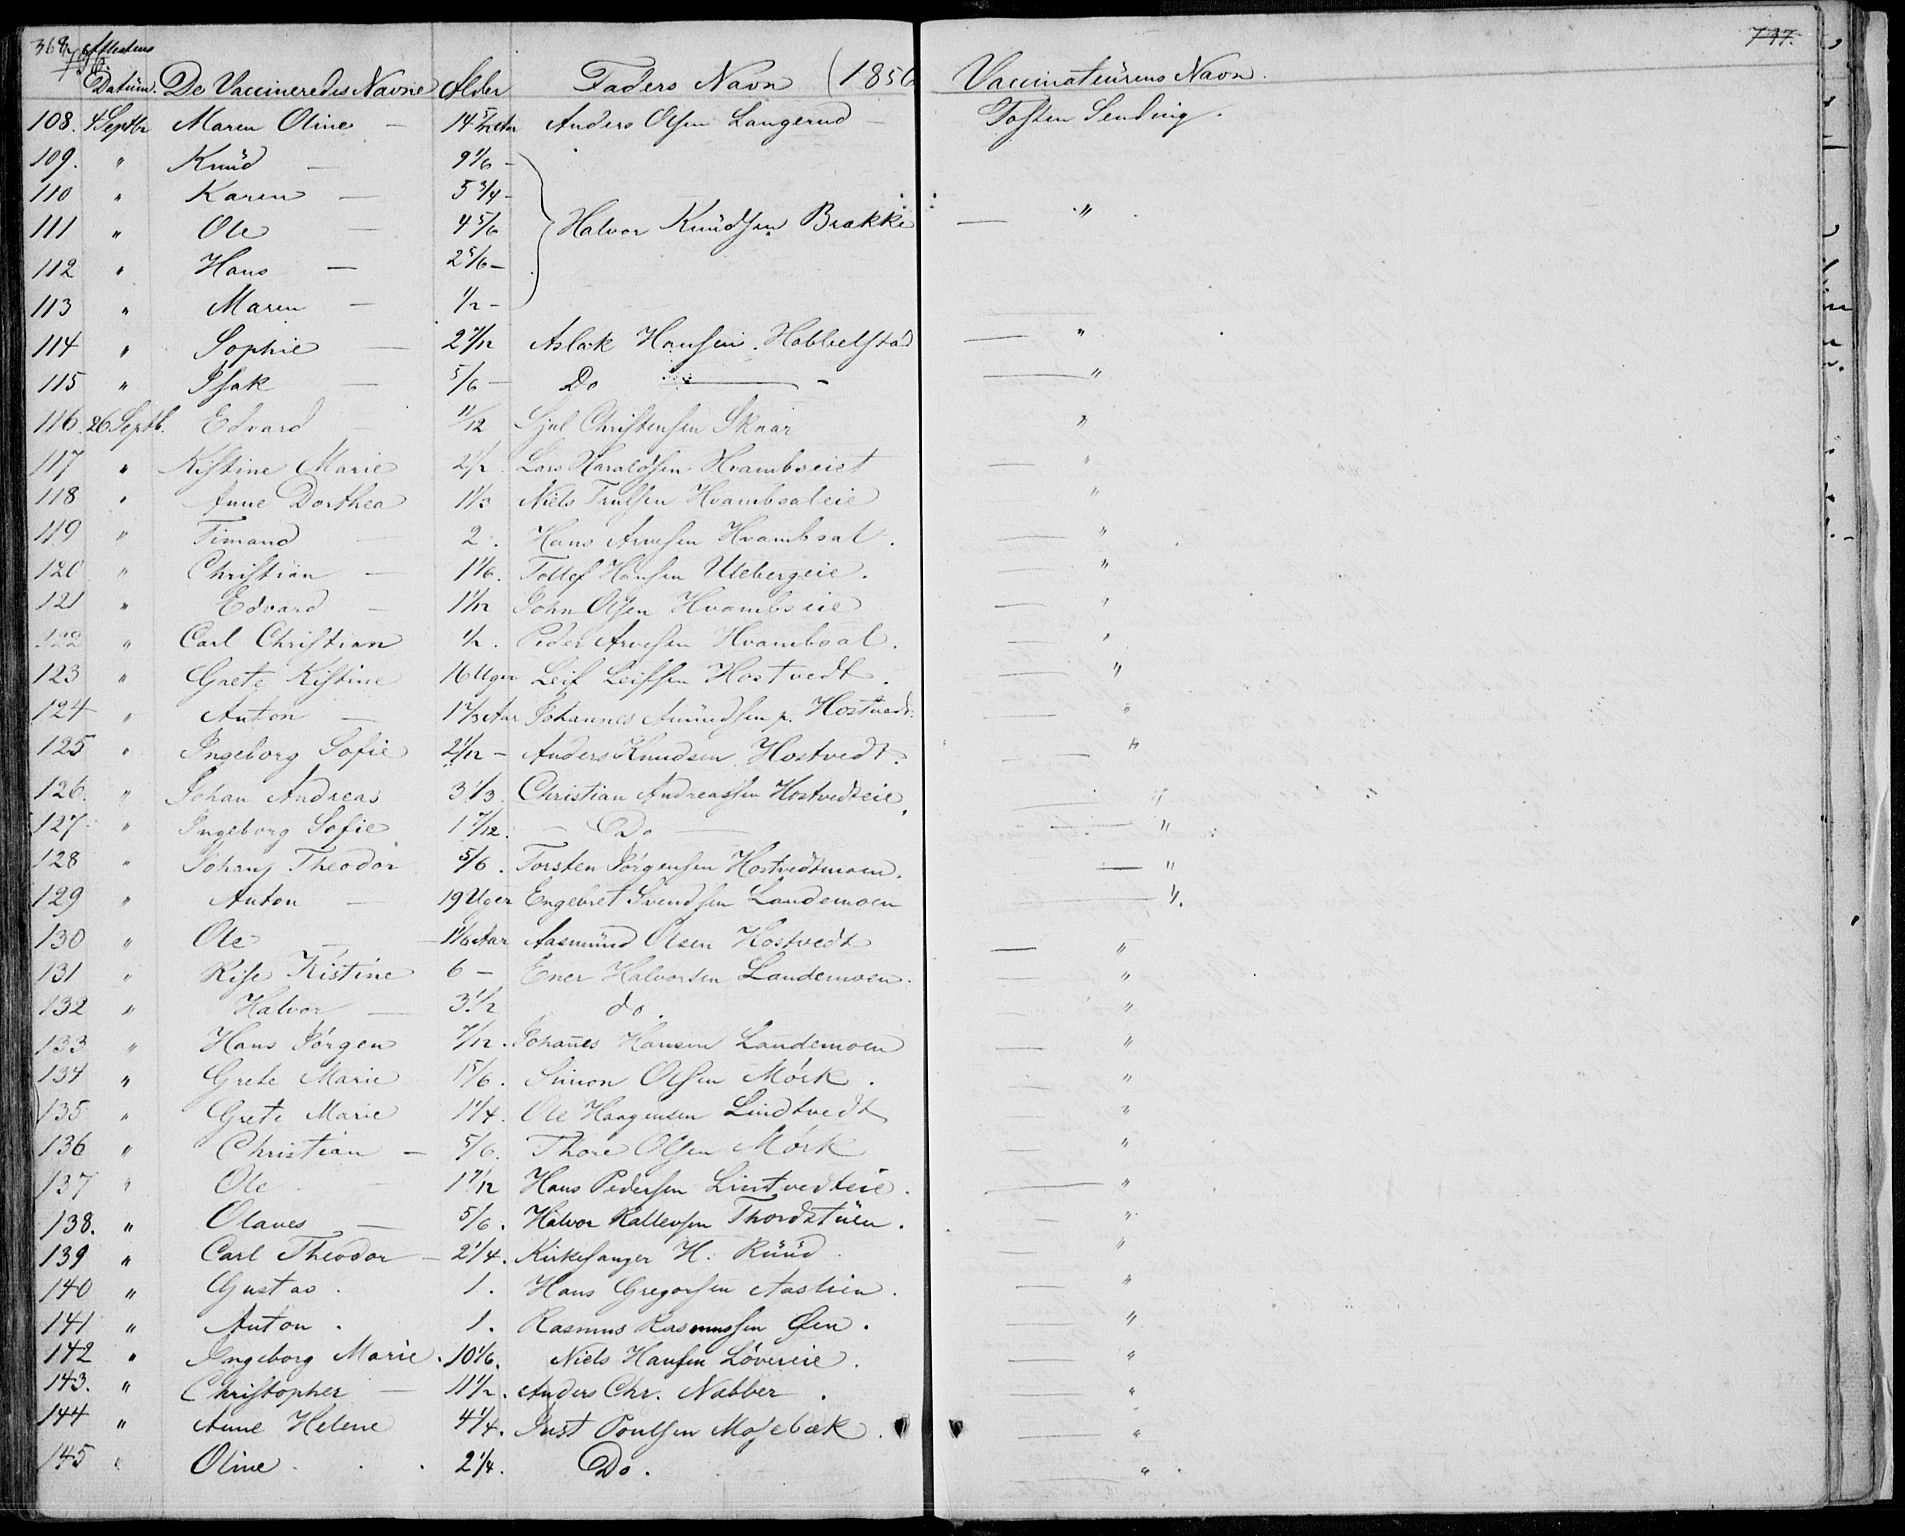 368. Attestens 737.
736.
Datum. De Vaccineredes Navne Alder Faders Navn (1850 Vaccinateurens Navn.
108. 4 Septbr Maren Oline — 14 5/12 Aar Anders Olsen Langerud — Tosten Sending.
109. " Knud — 9 1/6 —
110 " Karen — 5 3/4 —
111 " Ole — 4 5/6 Halvor Knudsen Brække — "
112 " Hans — 2 5/6 —
113 " Maren — 1/2 —
114 " Sophie — 2 7/12 Aslak Hansen Hobbelstad — "
115 " Isak — 5/6 — Do — "
116. 26 Septb. Edvard — 11/12 Gjul Christensen Skaar "
117 " Kistine Marie 2 1/2 Lars Haraldsen Hvambseiet — "
118 " Anne Dorthea 1 1/3 Niels Trulsen Hvambsaleie — "
119 " Timand — 2. Hans Arvesen Hvambsal. — "
120 " Christian — 1 1/6. Tollef Hansen Ulebergeie. — "
121 " Edvard — 1 1/12 John Olsen Hvambseie — "
122 " Carl Christian 1/2. Peder Arvesen Hvambsal. — "
123 " Grete Kistine 16 Uger Leif Leifsen Hostvedt. — "
124 " Anton — 1 2/3 Aar Johannes Amundsen p. Hostvedt. — "
125 " Ingeborg Sofie 2 1/12 — Anders Knudsen Hostvedt. — "
126. " Johan Andreas 3 1/3 Christian Andreassen Hostvedteie. — "
127. " Ingeborg Sofie 1 7/12. — Do — — "
128 " Johans Theodor 5/6. Torsten Jørgensen Hostvedtmoen. — "
129 " Anton — 19 Uger Engebret Svendsen Landemoen — "
130 " Ole — 1 1/6 Aar Aasmund Olsen Hostvedt — "
131 " Rise Kistine 6 — Ener Halvorsen Landemoen. — "
132 " Halvor — 3 1/2 do. — "
133 " Hans Jørgen 7/12. Johannes Hansen Landemoen — "
134 " Grete Marie 1 5/6. Simon Olsen Mörk. — "
135 " Grete Marie 1 1/4. Ole Haagensen Lindtvedt — "
136 " Christian — 5/6. Thore Olsen Mörk — "
137 " Ole — 1 7/12 Hans Pedersen Lintvedteie. — "
138. " Olaves — 5/6. Halvor Kallevsen Thordstuen. — "
139 " Carl Theodor — 2 1/4. Kirkesanger H. Ruud. — "
140 " Gustav. 1. Hans Gregorsen Aaslien. — "
141 " Anton. 1. Rasmus Rasmussen Øen. — "
142 " Ingeborg Marie. 10 1/6. Niels Hansen Løvereie. — "
143. " Christopher — 11 1/2. Anders Chr. Nabber. — "
144 " Anne Helene 4 1/4. Just Poulsen Mosebæk. — "
145 " Oline. 2 1/4. Do. — "